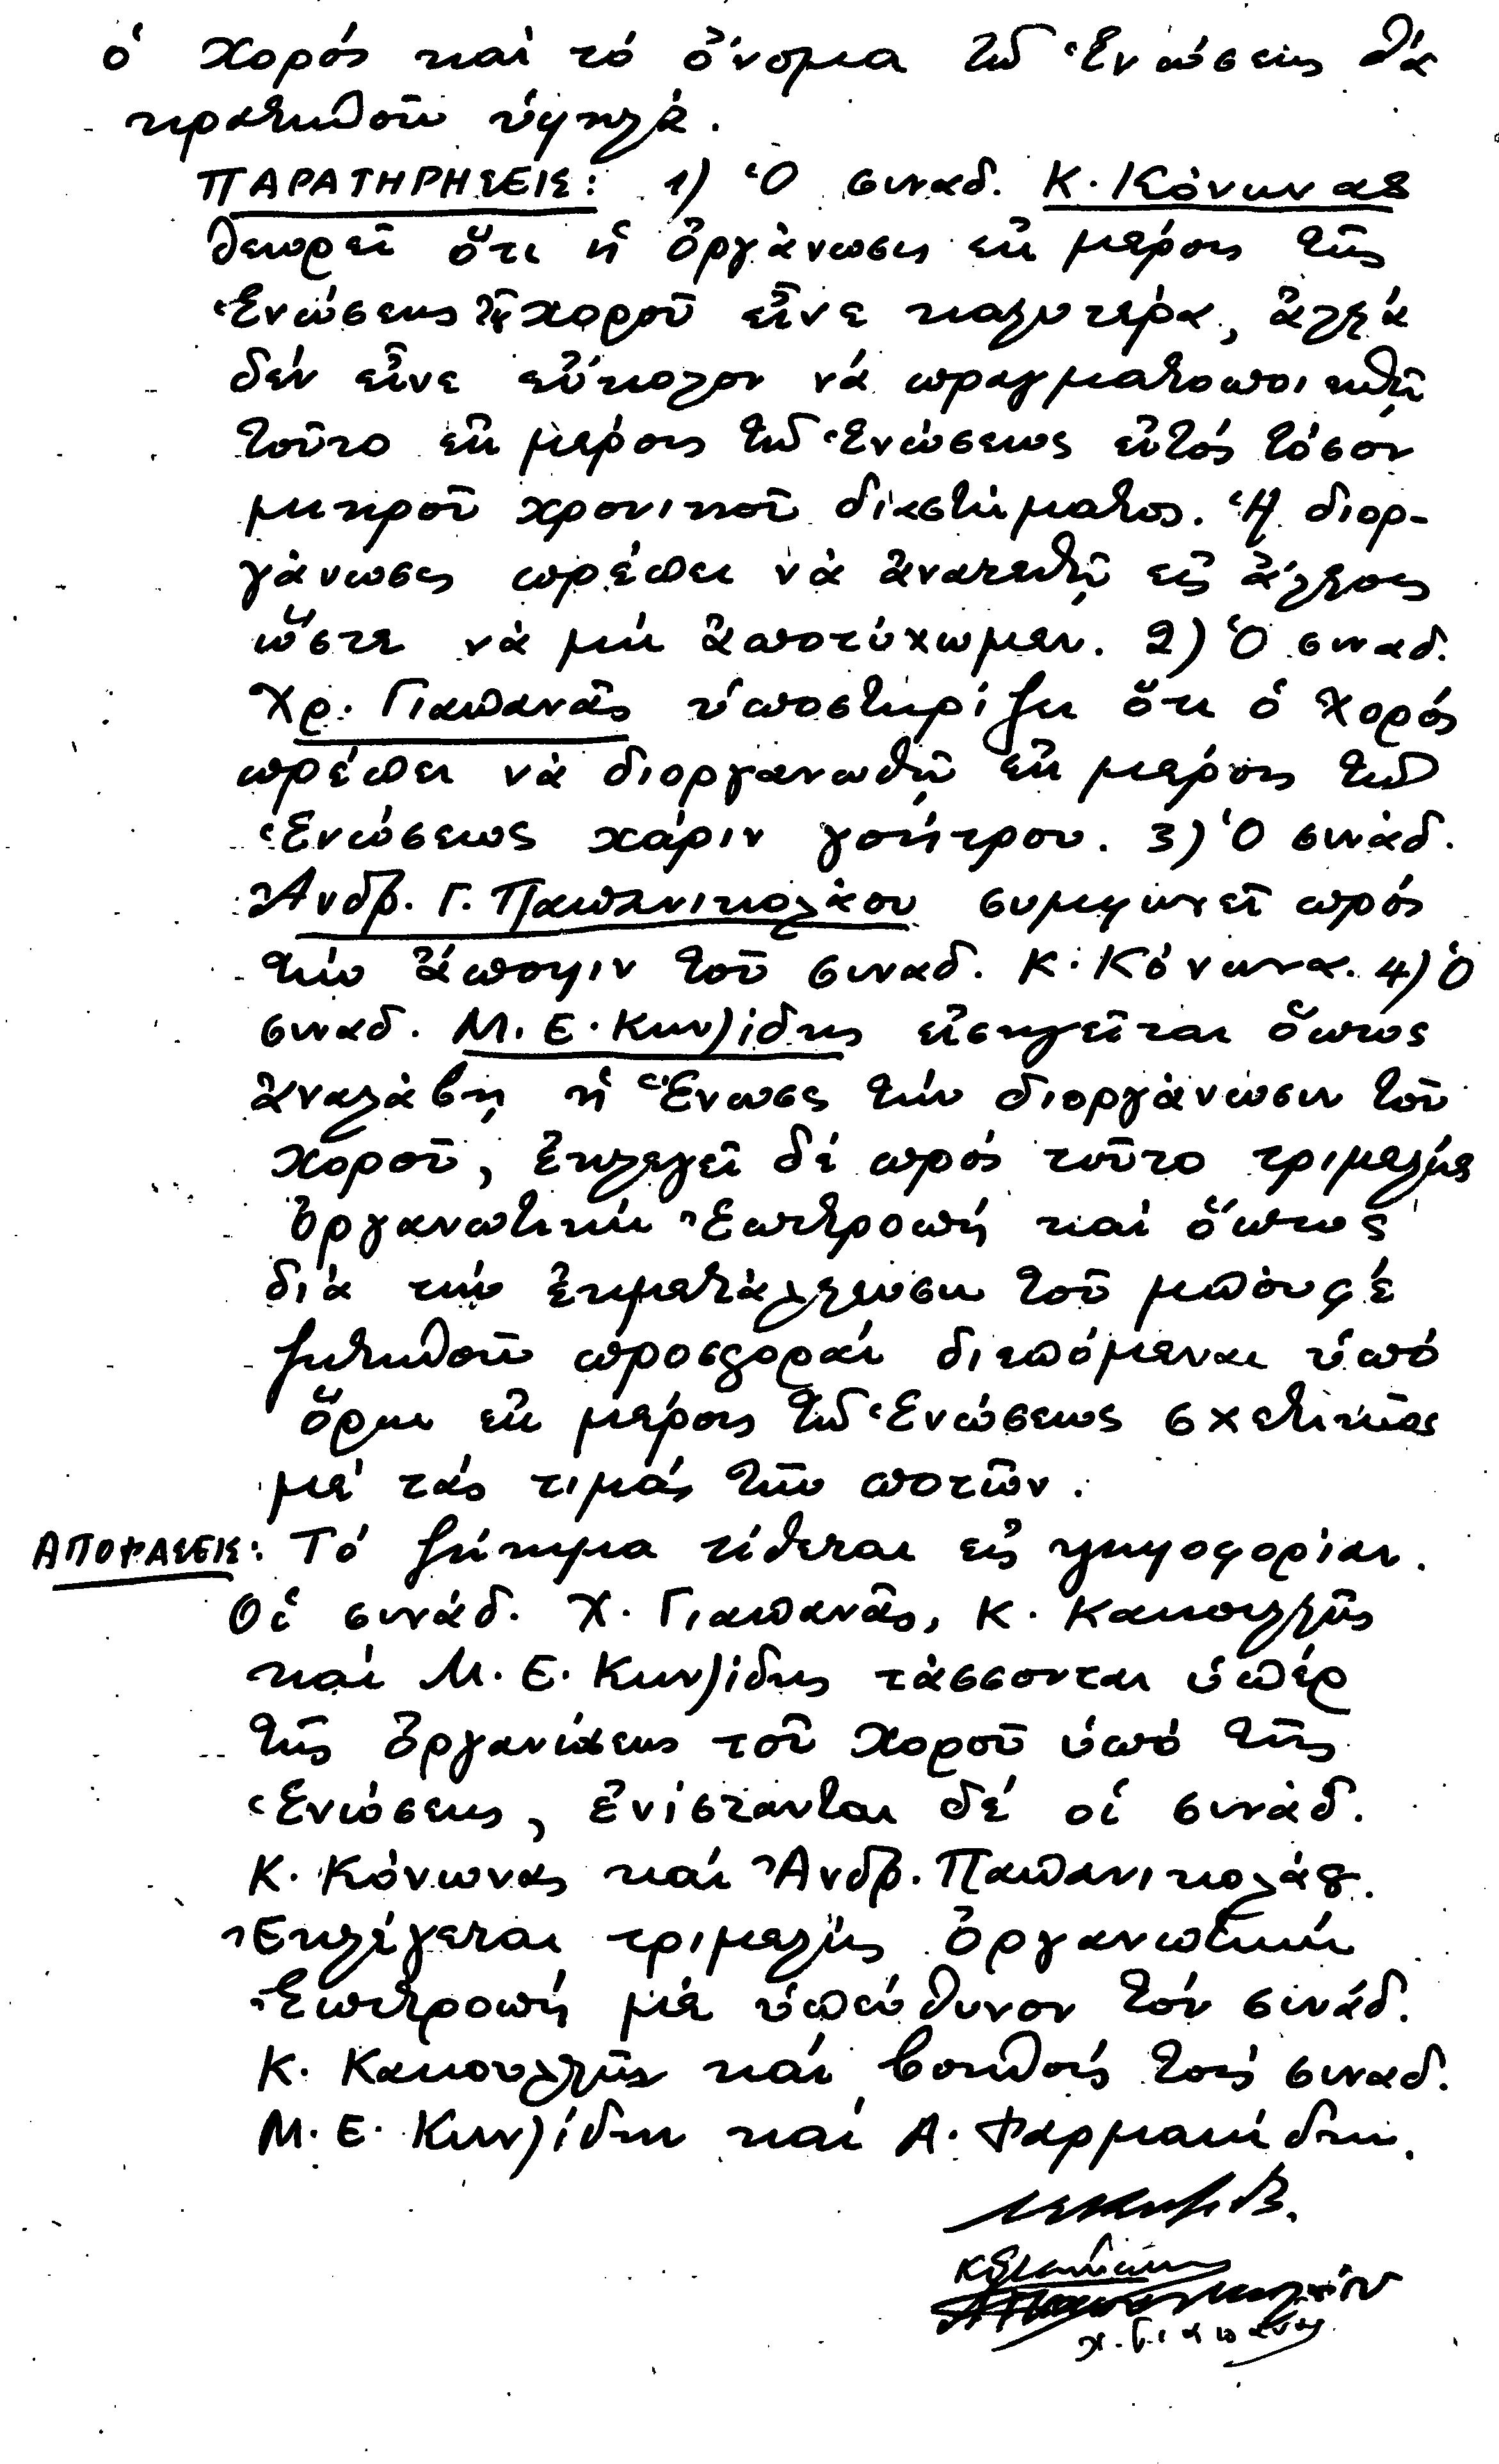 ὁ χορός καί τό ὄνομα τῆς Ἑνώσεως θά
κρατηθοῦν ὑψηλά.
ΠΑΡΑΤΗΡΗΣΕΙΣ: 1) Ὁ συναδ. Κ. Κόνωνας
θεωρεῖ ὅτι ἡ ὀργάνωσις ἐκ μέρους τῆς
Ἑνώσεως τοῦ χοροῦ εἶνε καλυτέρα, ἀλλά
δέν εἶνε εὔκολον νά πραγματοποιηθῇ
τοῦτο ἐκ μέρους τῆς Ἑνώσεως ἐντός τόσον
μικροῦ χρονικοῦ διαστήματος. Ἡ διορ-
γάνωσις πρέπει νά ἀνατεθῇ εἰς ἄλλους
ὥστε νά μή ἀποτύχωμεν. 2) Ὁ συναδ.
Χρ. Γιαπανᾶς ὑποστηρίζει ὅτι ὁ χορός
πρέπει νά διοργανωθῇ ἐκ μέρους τῆς
Ἑνώσεως χάριν γοήτρου. 3) Ὁ συνάδ.
Ἀνδρ. Γ. Παπανικολάου συμφωνεῖ πρός
τήν ἄποψιν τοῦ συναδ. Κ. Κόνωνα. 4) Ὁ
συναδ. Μ. Ε. Κιντζίδης εἰσηγεῖται ὅπως
ἀναλάβῃ ἡ Ἕνωσις τήν διοργάνωσιν τοῦ
χοροῦ, ἐκλεγεῖ δέ πρός τοῦτο τριμελής
Ὀργανωτική Ἐπιτροπή καί ὅπως
διά τήν ἐκμετάλλευσιν τοῦ μπουφέ
ζητηθοῦν προσφοραί διεπόμεναι ὑπό
ὅρων ἐκ μέρους τῆς Ἑνώσεως σχετικῶς
μέ τάς τιμάς τῶν ποτῶν.
ΑΠΟΦΑΣΕΙΣ: Τό ζήτημα τίθεται εἰς ψηφοφορίαν.
Οἱ συνάδ. Χ. Γιαπανᾶς, Κ. Κακουλλῆς
καί Μ. Ε. Κιντζίδης τάσσονται ὑπέρ
τῆς ὀργανώσεως τοῦ χοροῦ ὑπό τῆς
Ἑνώσεως, ἐνίστανται δέ οἱ συνάδ.
Κ. Κόνωνας καί Ἀνδρ. Παπανικολάου.
Ἐκλέγεται τριμελής ὀργανωτική
Ἐπιτροπή μέ ὑπεύθυνον τόν συνάδ.
Κ. Κακουλλῆν καί βοηθούς τούς συναδ.
Μ. Ε. Κιντζίδην καί Α. Φαρμακίδην.
Χ. Γιαπανᾶς